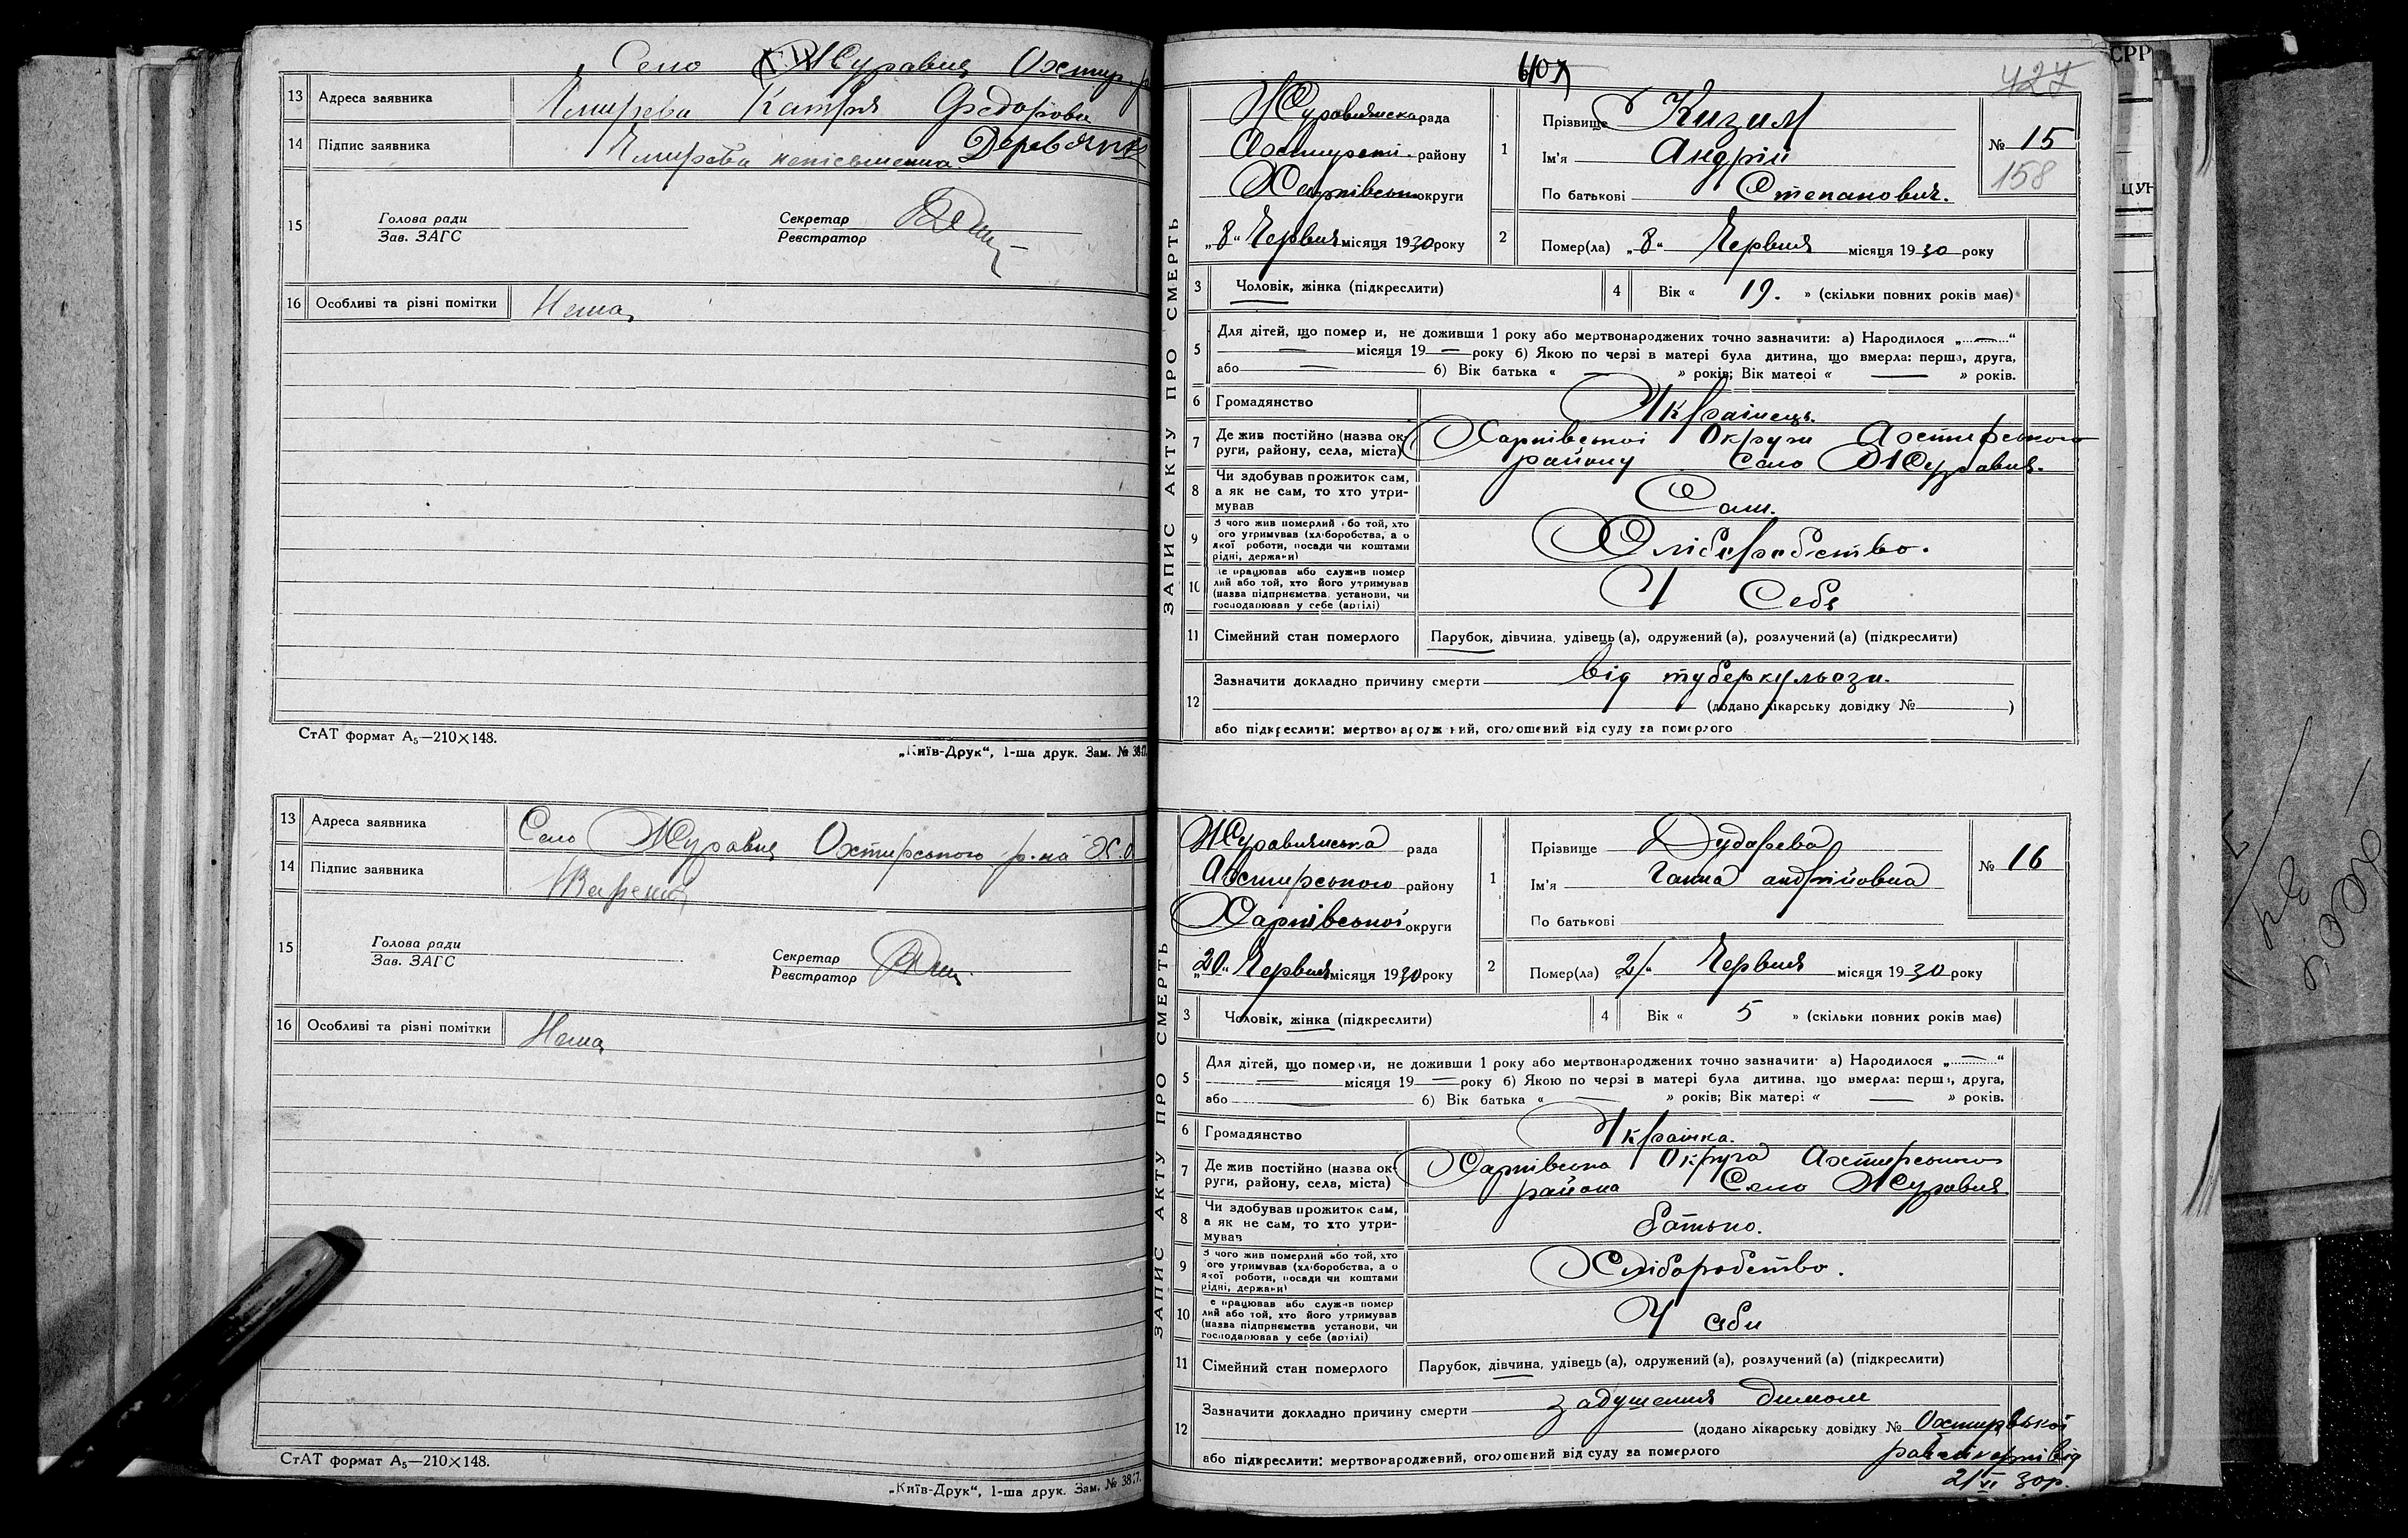 Село Журавня Охтир. р
13 Адреса заявника
Катря Федоровна
14 Підпис заявника
неписьменна
15 Голова ради
Зав. ЗАГС
Секретар
Реєстратор
16 Особливі та різні помітки Нема
СтАТ формат А₅—210×148.
„Київ-Друк“, 1-ша друк. Зам. № 3817.
13 Адреса заявника Село Журавня Охтирського р-на Х.О
14 Підпис заявника
15 Голова ради
Зав. ЗАГС
Секретар
Реєстратор
16 Особливі та різні помітки Нема
СтАТ формат А₅—210×148.
„Київ-Друк“, 1-ша друк. Зам. № 3817.
427
ЗАПИС АКТУ ПРО СМЕРТЬ
Журавнянска рада
Охтирськ. району
Харківськ округи
„8“ Червня місяця 1930 року
1 Прізвище Кизим
Ім'я Андрій
По батькові Степанович.
№ 15
158
2 Помер(ла) „8“ Червня місяця 1930 року
3 Чоловік, жінка (підкреслити)
4 Вік « 19. » (скільки повних років має)
5 Для дітей, що помер и, не доживши 1 року або мертвонароджених точно зазначити: а) Народилося „ — “
— місяця 19 — року б) Якою по черзі в матері була дитина, що вмерла: перша, друга,
або — б) Вік батька « — » років; Вік матері « — » років.
6 Громадянство Українець.
7 Де жив постійно (назва ок-
руги, району, села, міста)
Харківської Округи Ахтирського
району село Журавня.
8 Чи здобував прожиток сам,
а як не сам, то хто утри-
мував
Сам.
9 З чого жив померлий або той, хто
ого утримував (хліборобства, а о
якої роботи, посади чи коштами
рідні, держави)
Хліборобство.
10 е працював або служив помер
лий або той, хто його утримував
(назва підприємства, установи, чи
господарював у себе (артілі)
У Себе
11 Сімейний стан померлого Парубок, дівчина, удівець (а), одружений (а), розлучений (а) (підкреслити)
12 Зазначити докладно причину смерти від туберкульози.
(додано лікарську довідку № )
або підкреслити: мертвонароджений, оголошений від суду за померлого
ЗАПИС АКТУ ПРО СМЕРТЬ
Журавнянська рада
Ахтирського району
Харківської округи
„20“ Червня місяця 1930 року
1 Прізвище Дударева
Ім'я Ганна андрійовна
По батькові
№ 16
2 Помер(ла) „21“ Червня місяця 1930 року
3 Чоловік, жінка (підкреслити)
4 Вік « 5 » (скільки повних років має)
5 Для дітей, що померли, не доживши 1 року або мертвонароджених точно зазначити: а) Народилося „ — “
— місяця 19 — року б) Якою по черзі в матері була дитина, що вмерла: перша, друга,
або — б) Вік батька « — » років; Вік матері « — » років.
6 Громадянство Українка.
7 Де жив постійно (назва ок-
руги, району, села, міста)
Харківська Округа Ахтирського
района Село Журавня
8 Чи здобував прожиток сам,
а як не сам, то хто утри-
мував
батько.
9 З чого жив померлий або той, хто
ого утримував (хліборобства, а о
якої роботи, посади чи коштами
рідні, держави)
Хліборобство.
10 е працював або служив помер
лий або той, хто його утримував
(назва підприємства установи, чи
господарював у себе (артілі)
У себи
11 Сімейний стан померлого Парубок, дівчина, удівець (а), одружений (а), розлучений (а) (підкреслити)
12 Зазначити докладно причину смерти задушення димом
(додано лікарську довідку № Охтирської
або підкреслити: мертвонароджений, оголошений від суду за померлого від
21 VI 30р.